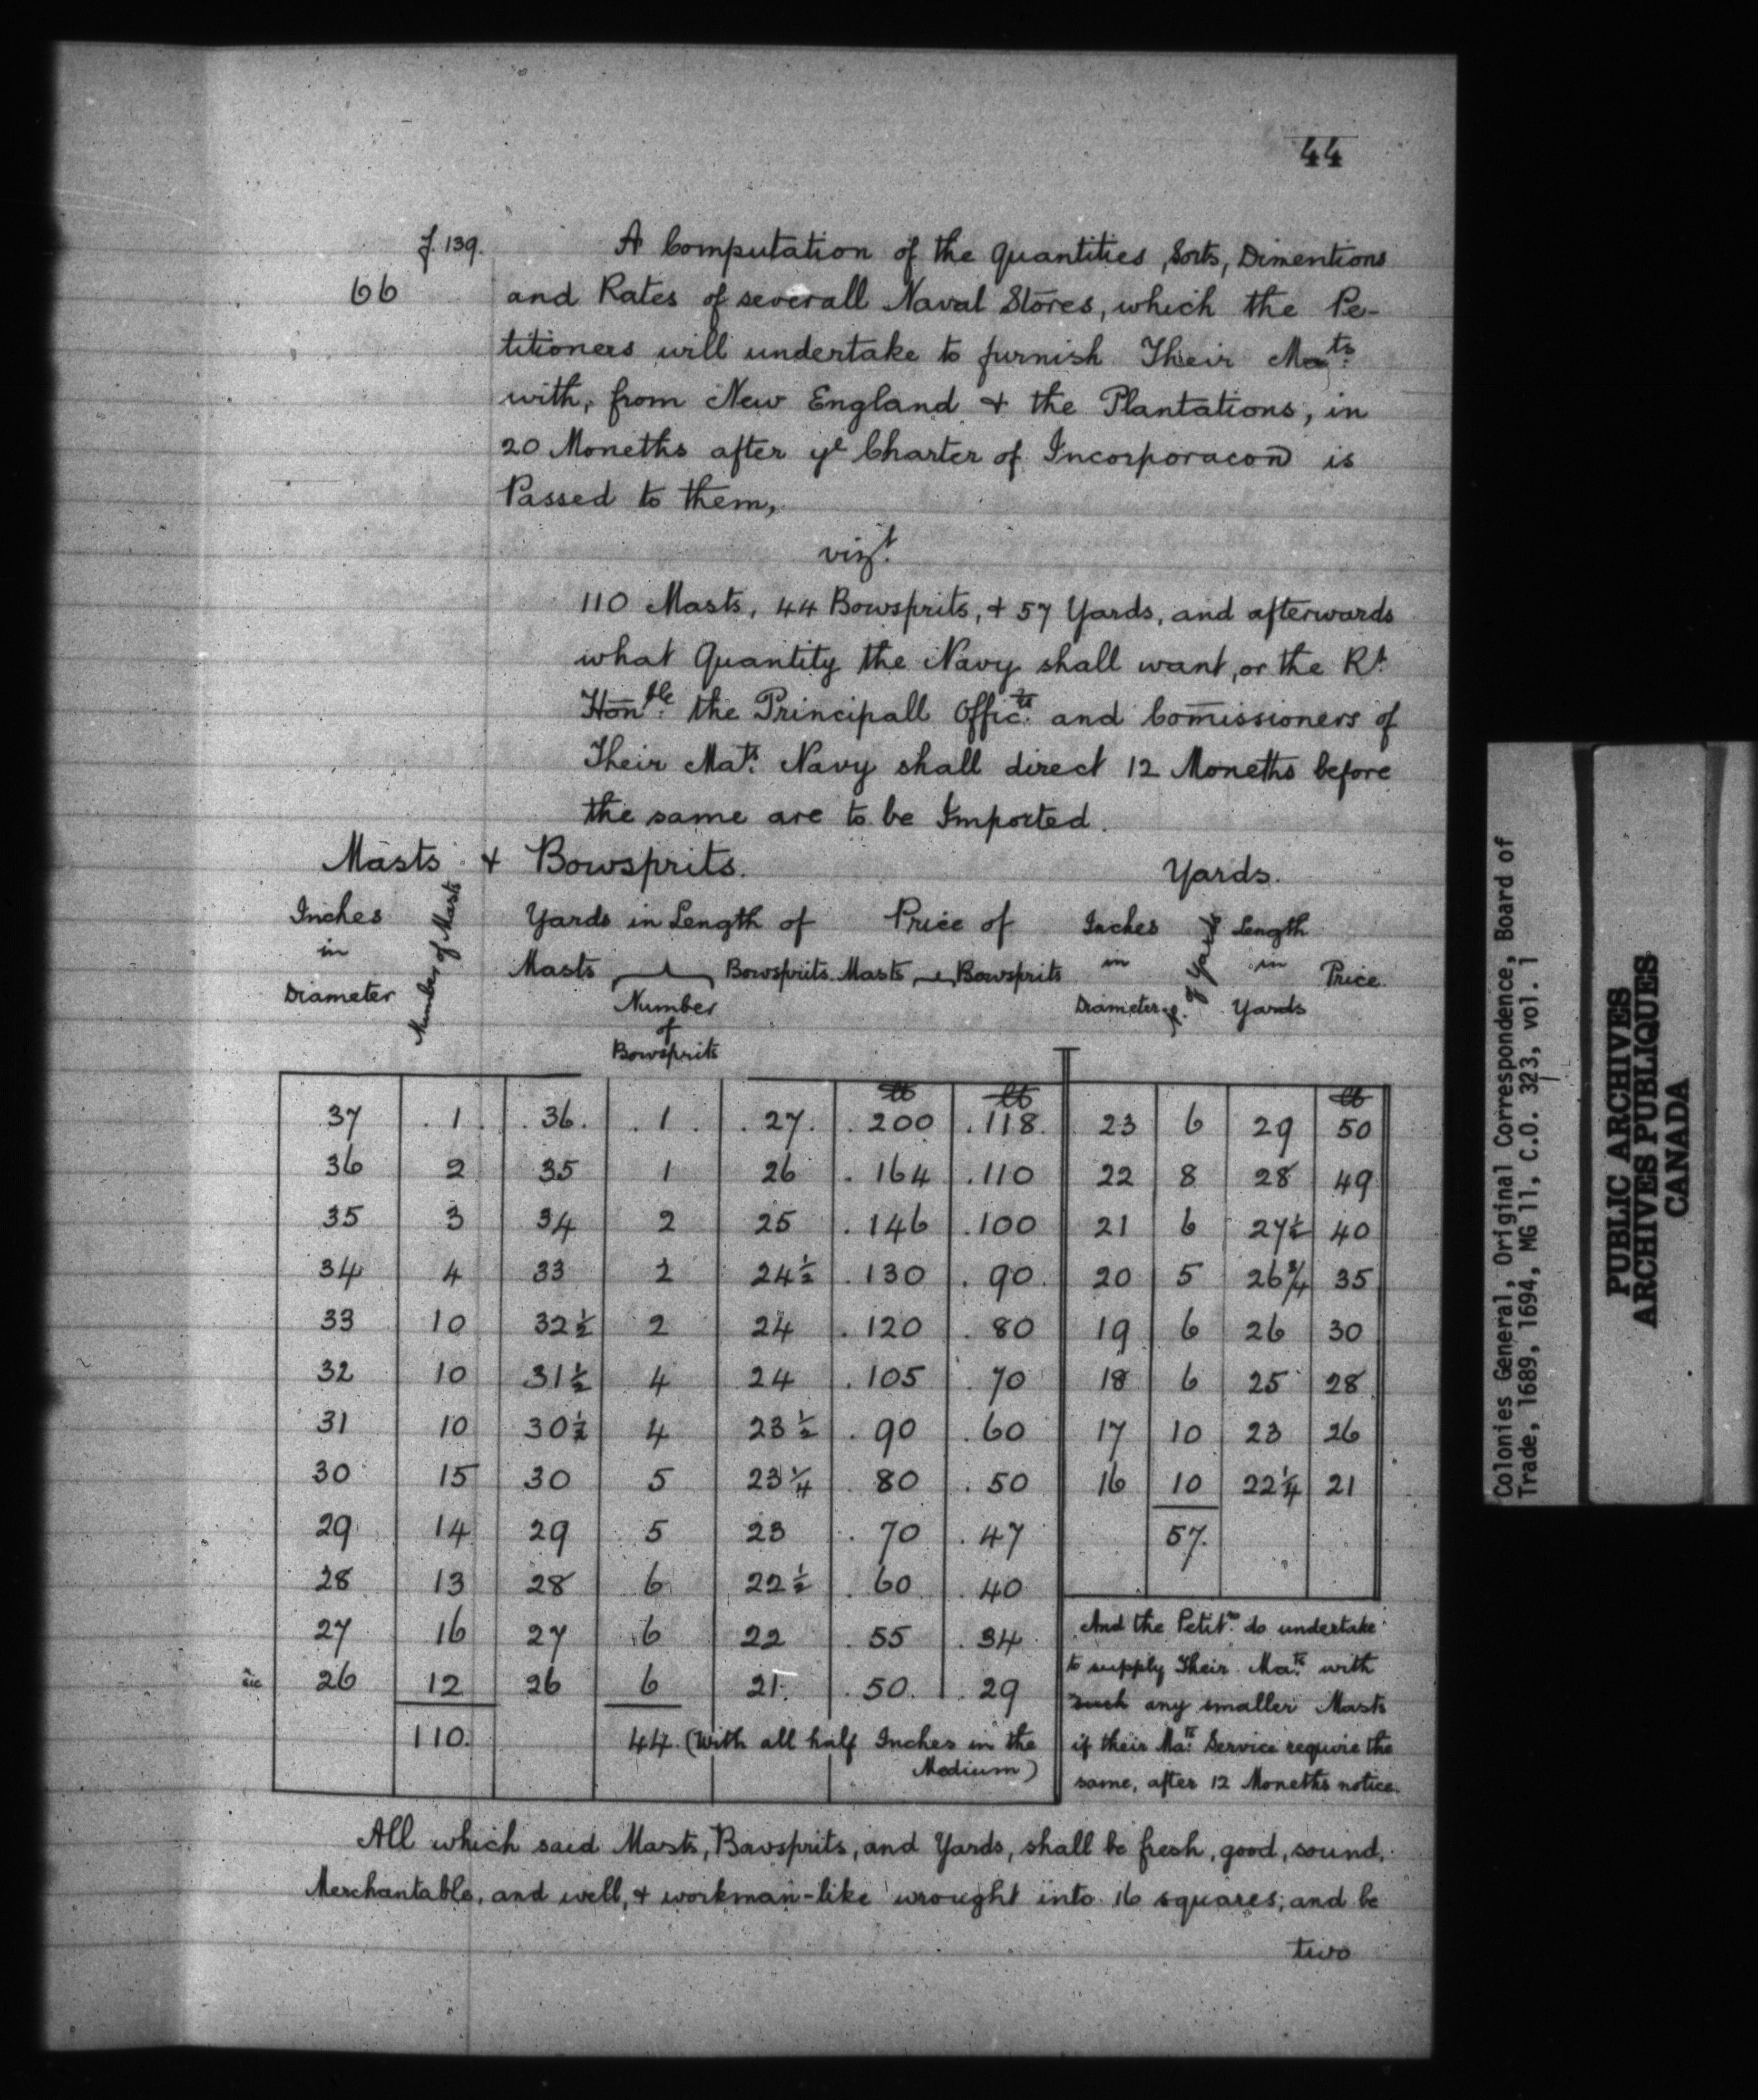 44
f. 139.
66
A Computation of the Quantities, Sorts, Dimentions
and Rates of severall Naval Stores, which the Pe-
titioners will undertake to furnish Their Mats.
with, from New England + the Plantations, in
20 Moneths after ye Charter of Incorporacon is
Passed to them,
vizt.
110 Masts, 44 Bowsprits, + 57 Yards, and afterwards
what Quantity the Navy shall want, or the Rt.
Honble. the Principall Officrs. and Comissioners of
Their Mats. Navy shall direct 12 Moneths before
the same are to be Imported.
Masts + Bowsprits. Yards.
Inches in Diameter
Number of Masts
Yards in Length of
Masts Bowsprits
Number of Bowsprits
Price of
Masts Bowsprits
Inches in Diameter
of Yards
Length in Yards
Price.
lb lb lb
37 1 36 1 27 200 118 23 6 29 50
36 2 35 1 26 164 110 22 8 28 49
35 3 34 2 25 146 100 21 6 27½ 40
34 4 33 2 24½ 130 90 20 5 26¾ 35
33 10 32½ 2 24 120 80 19 6 26 30
32 10 31½ 4 24 105 70 18 6 25 28
31 10 30½ 4 23½ 90 60 17 10 23 26
30 15 30 5 23¼ 80 50 16 10 22¼ 21
29 14 29 5 23 70 47 57.
28 13 28 6 22½ 60 40
27 16 27 6 22 55 34
sic 26 12 26 6 21 50 29
110. 44. (With all half Inches in the
Medium)
And the Petitrs. do undertake
to supply Their Mats. with
such any smaller Masts
if their Mats. Service requrie the
same, after 12 Moneths notice.
All which said Masts, Bowsprits, and Yards, shall be fresh, good, sound,
Merchantable, and well, + workman-like wrought into 16 squares; and be
two
Colonies General, Original Correspondence, Board of
Trade, 1689, 1694, MG 11, C.O. 323, vol. 1
PUBLIC ARCHIVES
ARCHIVES PUBLIQUES
CANADA